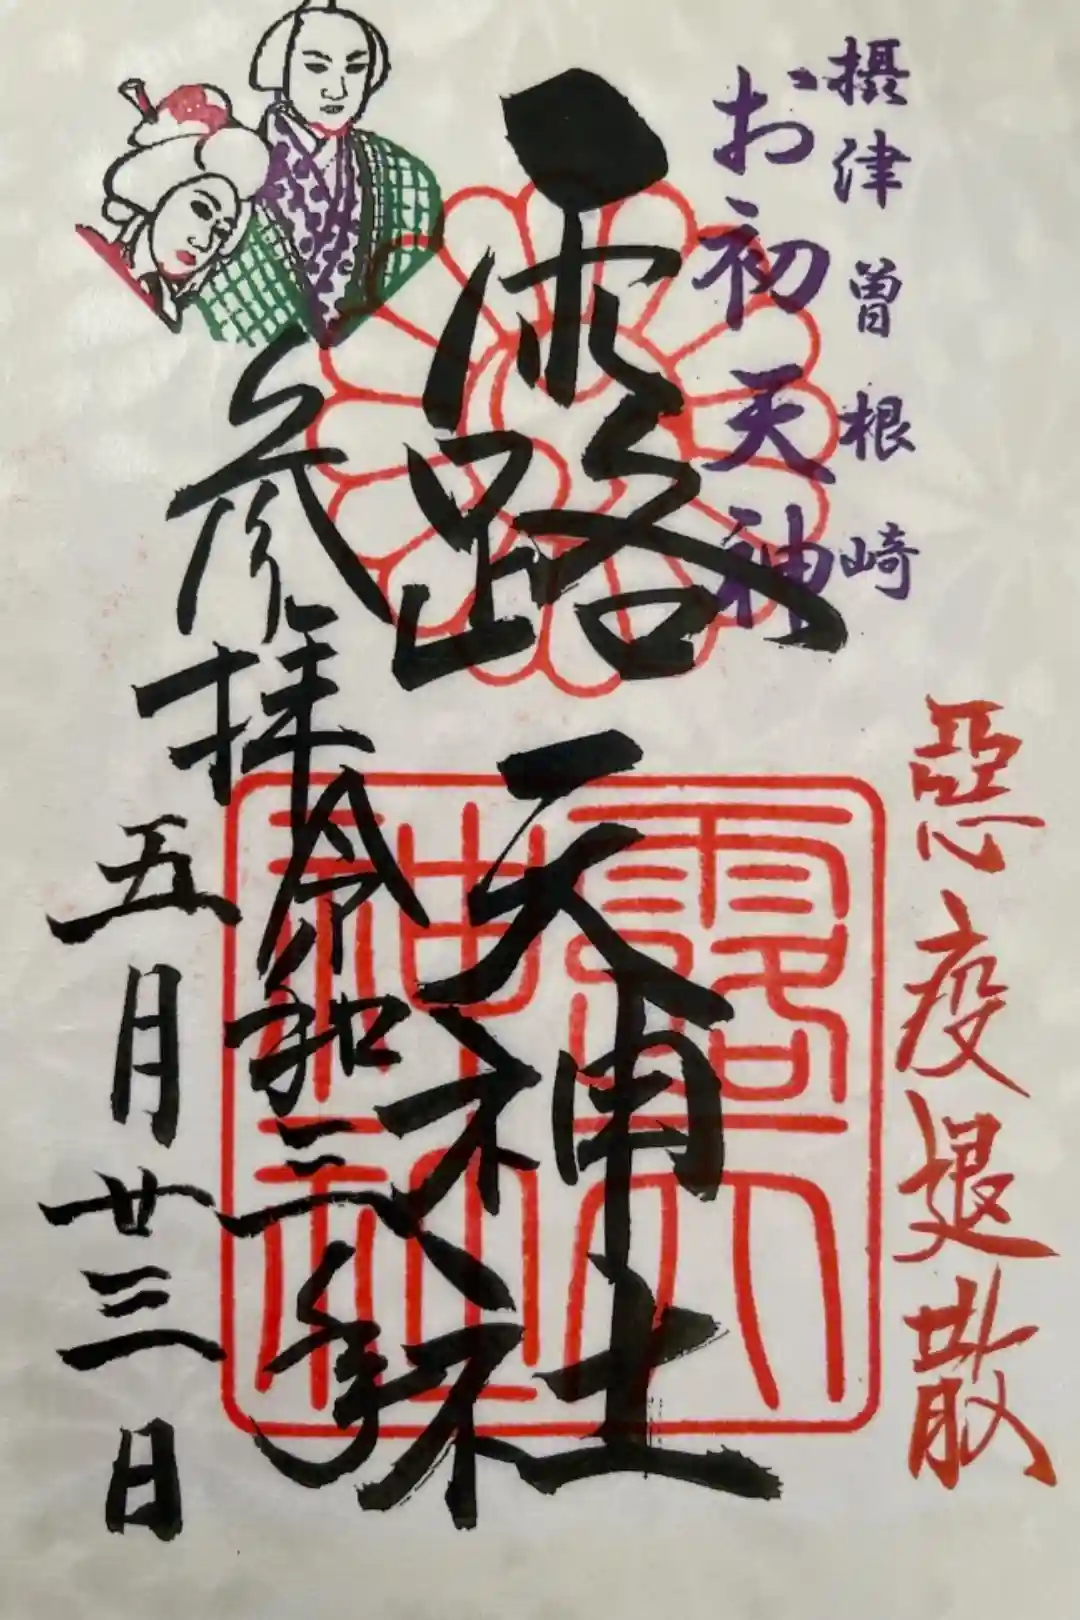 摂津曽根崎
お初天神
惡疫退散
露天神社
露天
神社
参拝令和三年
五月廿三日